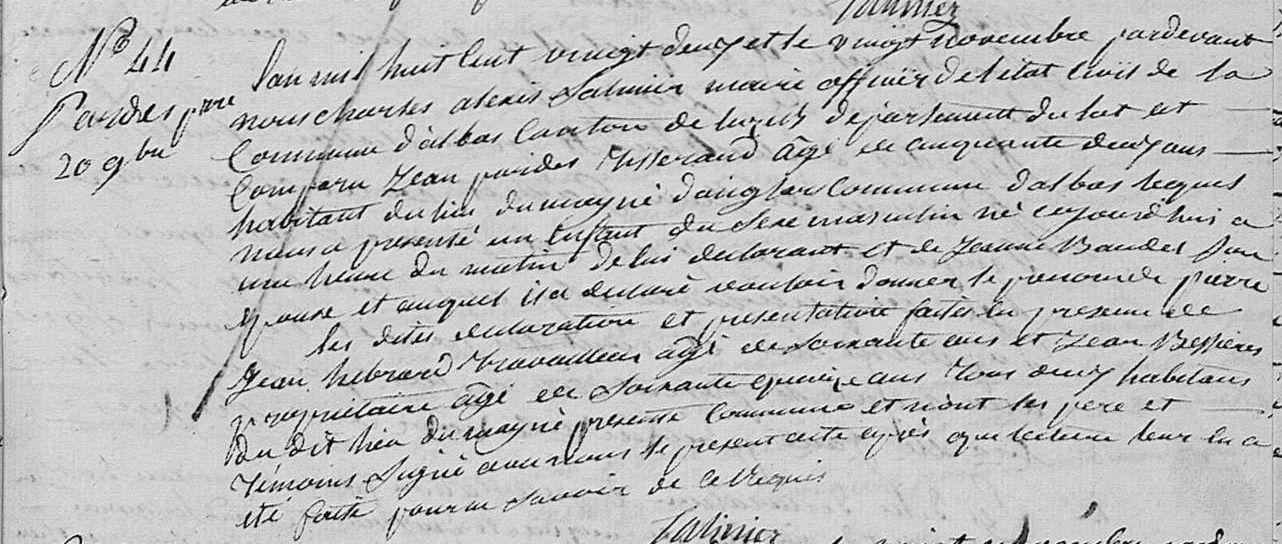 Salinier
N° 44
Pardes pierre
20 9bre
L'an mil huit cent vingt deux et le vingt novembre pardevant
nous charles alexis Salinier maire officier de l'état civil de la
Commune d'albas Canton de luzech département du lot et
Comparu Jean pardes tisserand âgé de cinquante deux ans
habitant du lieu du mayné d'anglar Commune d'albas lequel
nous a presenté un Enfant du Sexe masculin né cejourdhui a
une heure du matin de lui declarant et de Jeanne Baudel Son
epouse et auquel il a declaré vouloir donner le prenom de pierre
les dites declaration et presentation faites En presence de
Jean hebrard travailleur agé de soixante ans et Jean Bessieres
propriétaire agé de Soixante quinze ans tous deux habitans
du dit lieu du mayné presente Commune et n'ont les pere et
témoins Signé avec nous le present acte après que lecture leur En a
été faite pour ne Savoir de ce Requis
Salinier
vingt novembre